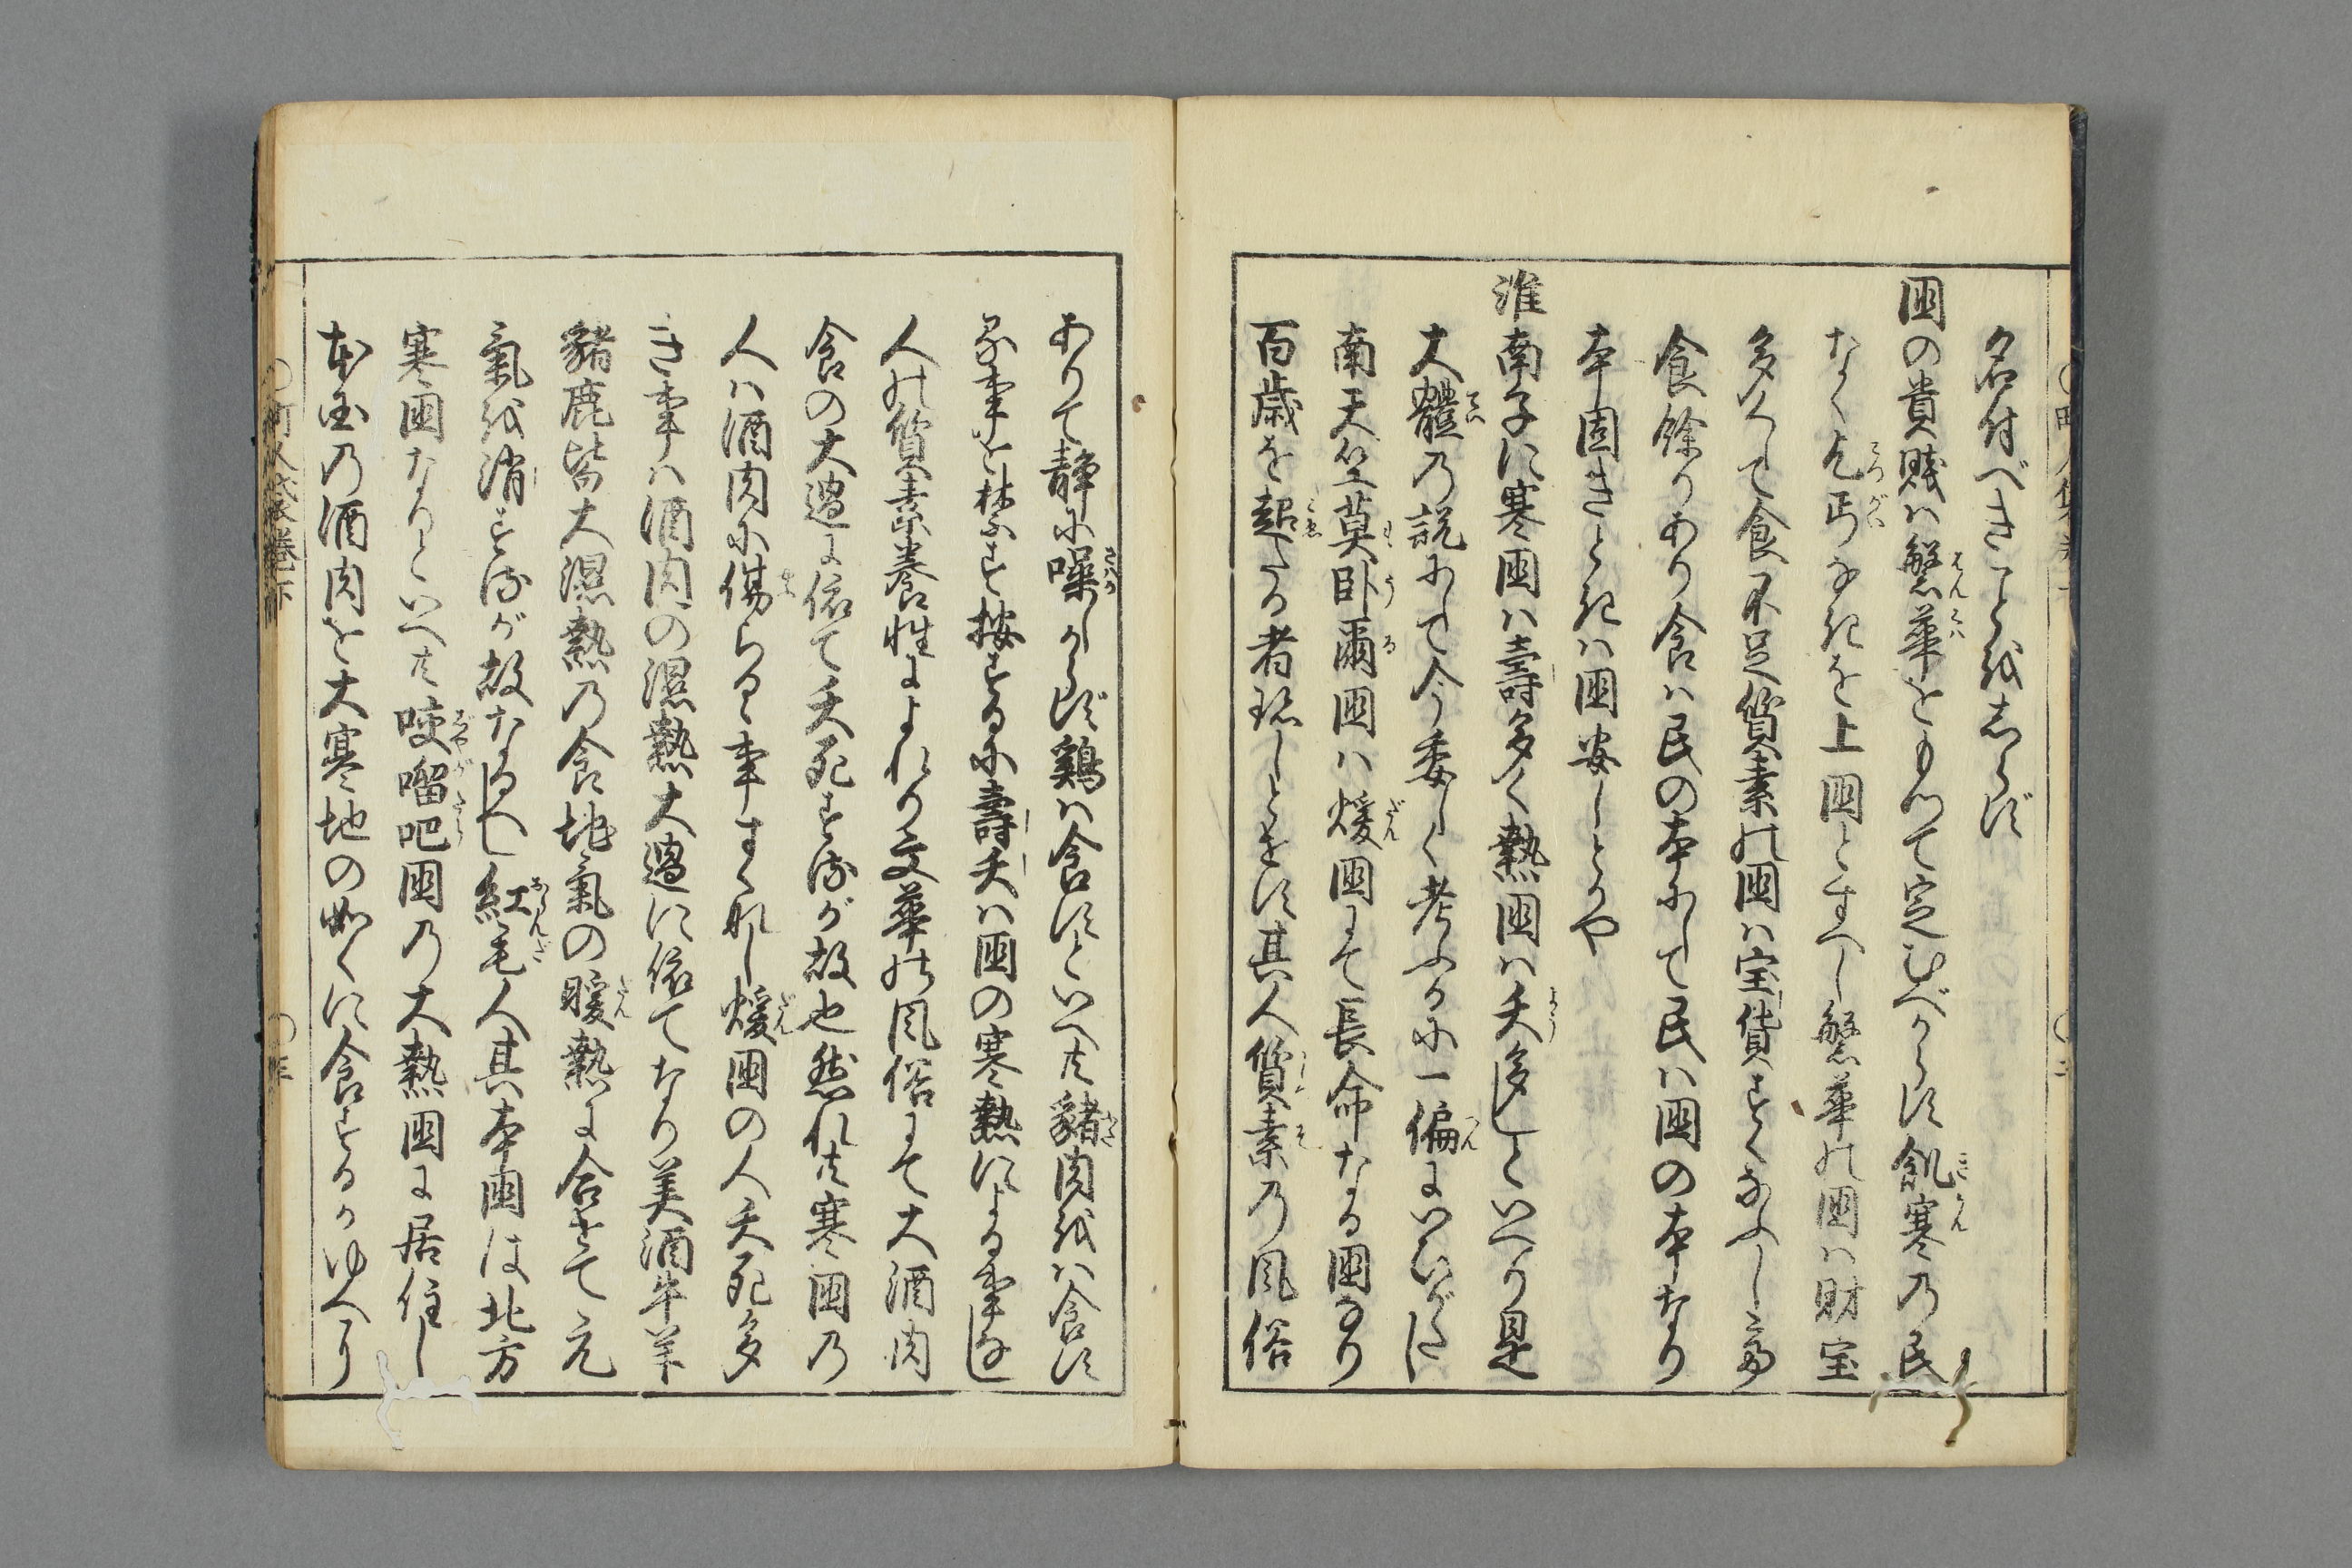 名付べきことを志らず
国の貴賤ハ繁華をもつて定むべからず飢寒の民
なく乞丐なきを上国とすへし繁華の国ハ財宝
多くして食不足質素の国ハ宝貨すくなふして
食餘りあり食ハ民の本にして民ハ国の本なり
本固きときハ国安しとかや
淮南子に寒国ハ壽多く熱国ハ夭多しといへり是
大體の説にして今委しく考ふるに一偏にいひがたし
南天竺莫臥爾国ハ煖国にて長命なる国なり
百歳を超たる者珎しとせず其人質素の風俗
ありて静に噪しからず鶏ハ食すといへ共猪肉をハ食す
る事を禁ず按ずるに壽夭ハ国の寒熱による事なし
人の質素養性によれり文華の風俗にて大酒肉
食の大過に依て夭死するが故也然れ共寒国の
人ハ酒肉に傷らるゝ事すくなし煖国の人夭死多
き事ハ酒肉の湿熱大過に依てなり美酒牛羊
猪鹿皆大湿熱の食地氣の暖熱に合せて元
氣を消するが故なるへし紅毛人其本国は北方
寒国なりといへ共咬𠺕吧国の大熱国に居住し
本国の酒肉を大寒地の如くに食するかゆへに
町人袋巻下